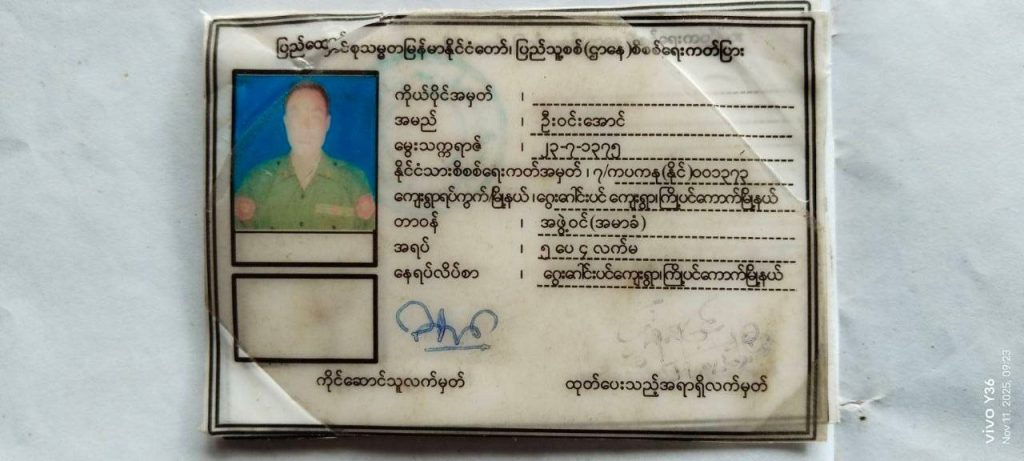 ပြည်ထောင်စုသမ္မတမြန်မာနိုင်ငံတော်၊ ပြည်သူ့စစ်(ဌာနေ)စိစစ်ရေးကတ်ပြား
ကိုယ်ပိုင်အမှတ် ၊
အမည် ၊ ဦးဝင်းအောင်
မွေးသက္ကရာဇ် ၊ ၂၃-၇-၁၃၇၅
နိုင်ငံသားစိစစ်ရေးကတ်အမှတ် ၊ ၇/ကပကန(နိုင်)၀၀၁၃၇၃
ကျေးရွာ/ရပ်ကွက်/မြို့နယ် ၊ ဂွေးခေါင်းပင် ကျေးရွာ၊ကြို့ပင်ကောက်မြို့နယ်
တာဝန် ၊ အဖွဲ့ဝင်(အမာခံ)
အရပ် ၊ ၅ ပေ ၄ လက်မ
နေရပ်လိပ်စာ ၊ ဂွေးခေါင်းပင်ကျေးရွာ၊ကြို့ပင်ကောက်မြို့နယ်
ကိုင်ဆောင်သူလက်မှတ်
ထုတ်ပေးသည့်အရာရှိလက်မှတ်
vivo Y36
Nov 11, 2025, 09:23